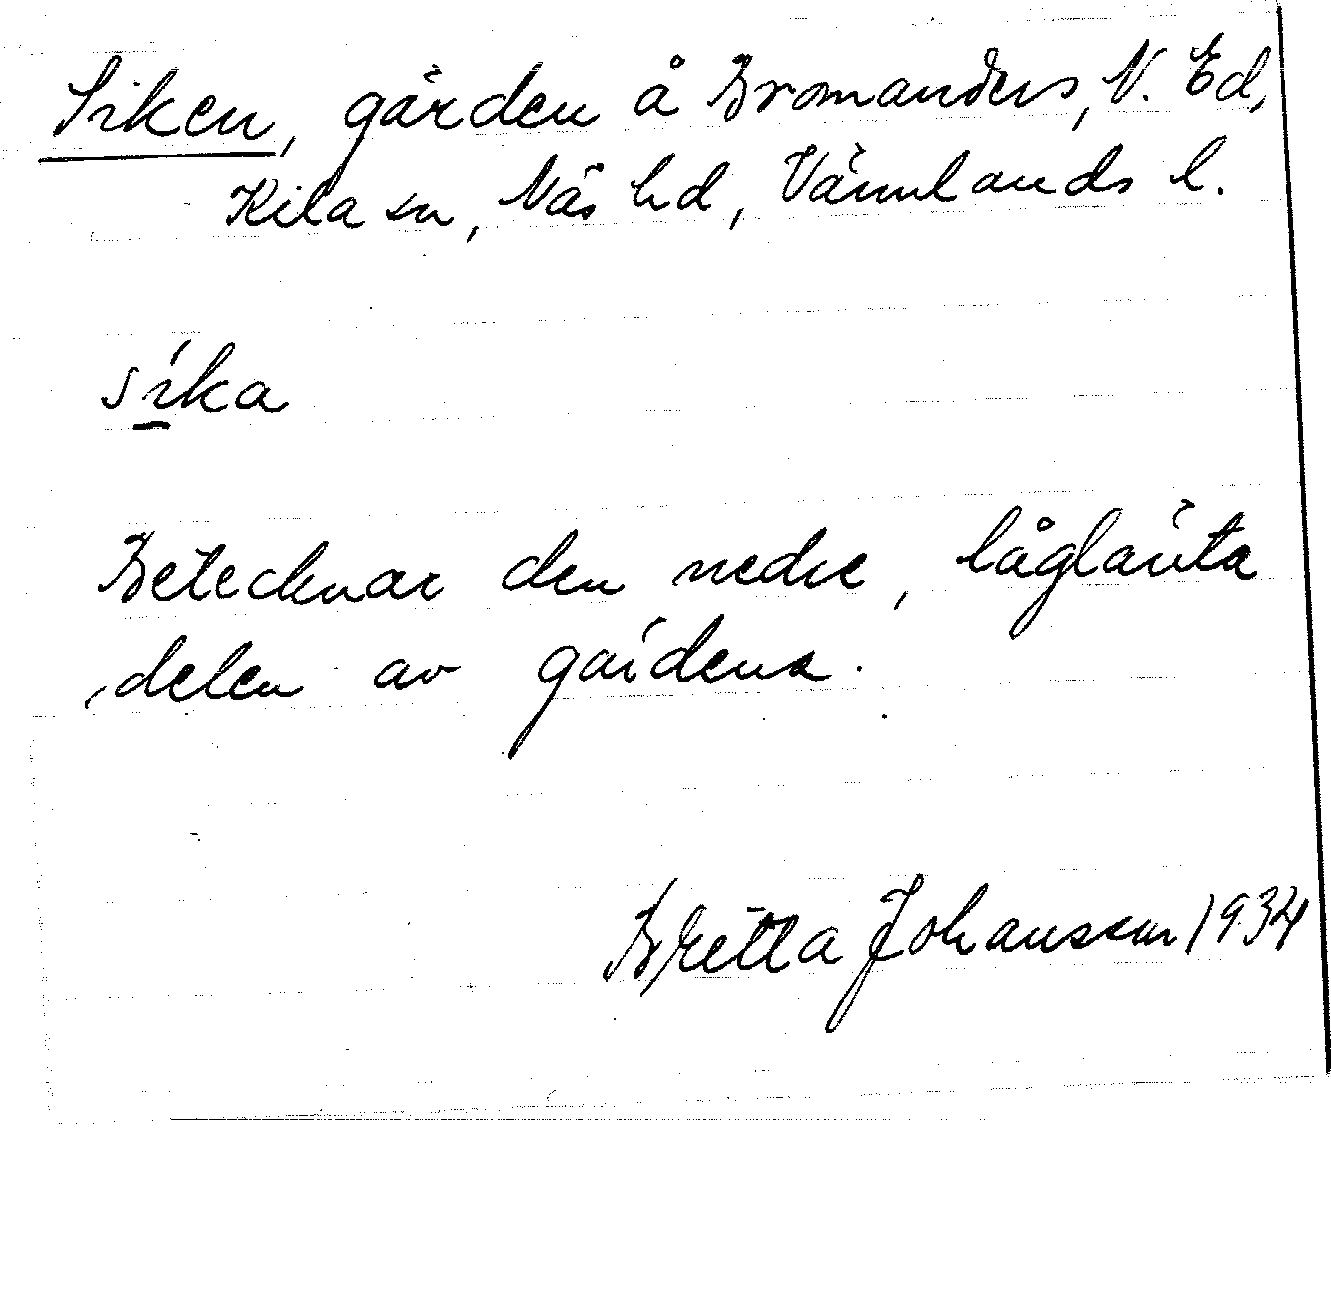 Siken, gärden å Bromanders, N. Ed,
Kila sn, Näs hd, Värmlands l.
síka
Betecknar den nedre, låglänta
delen av gärdena.
Britta Johansson 1934